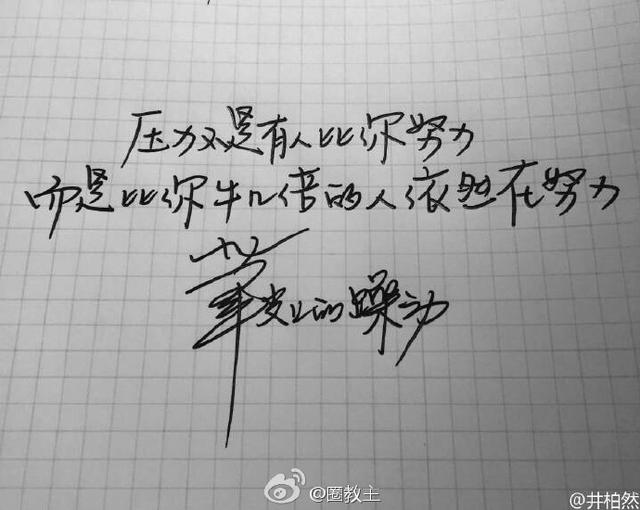 压力不是有人比你努力
而是比你牛几倍的人依然在努力
的躁动
@圈教主
@井柏然